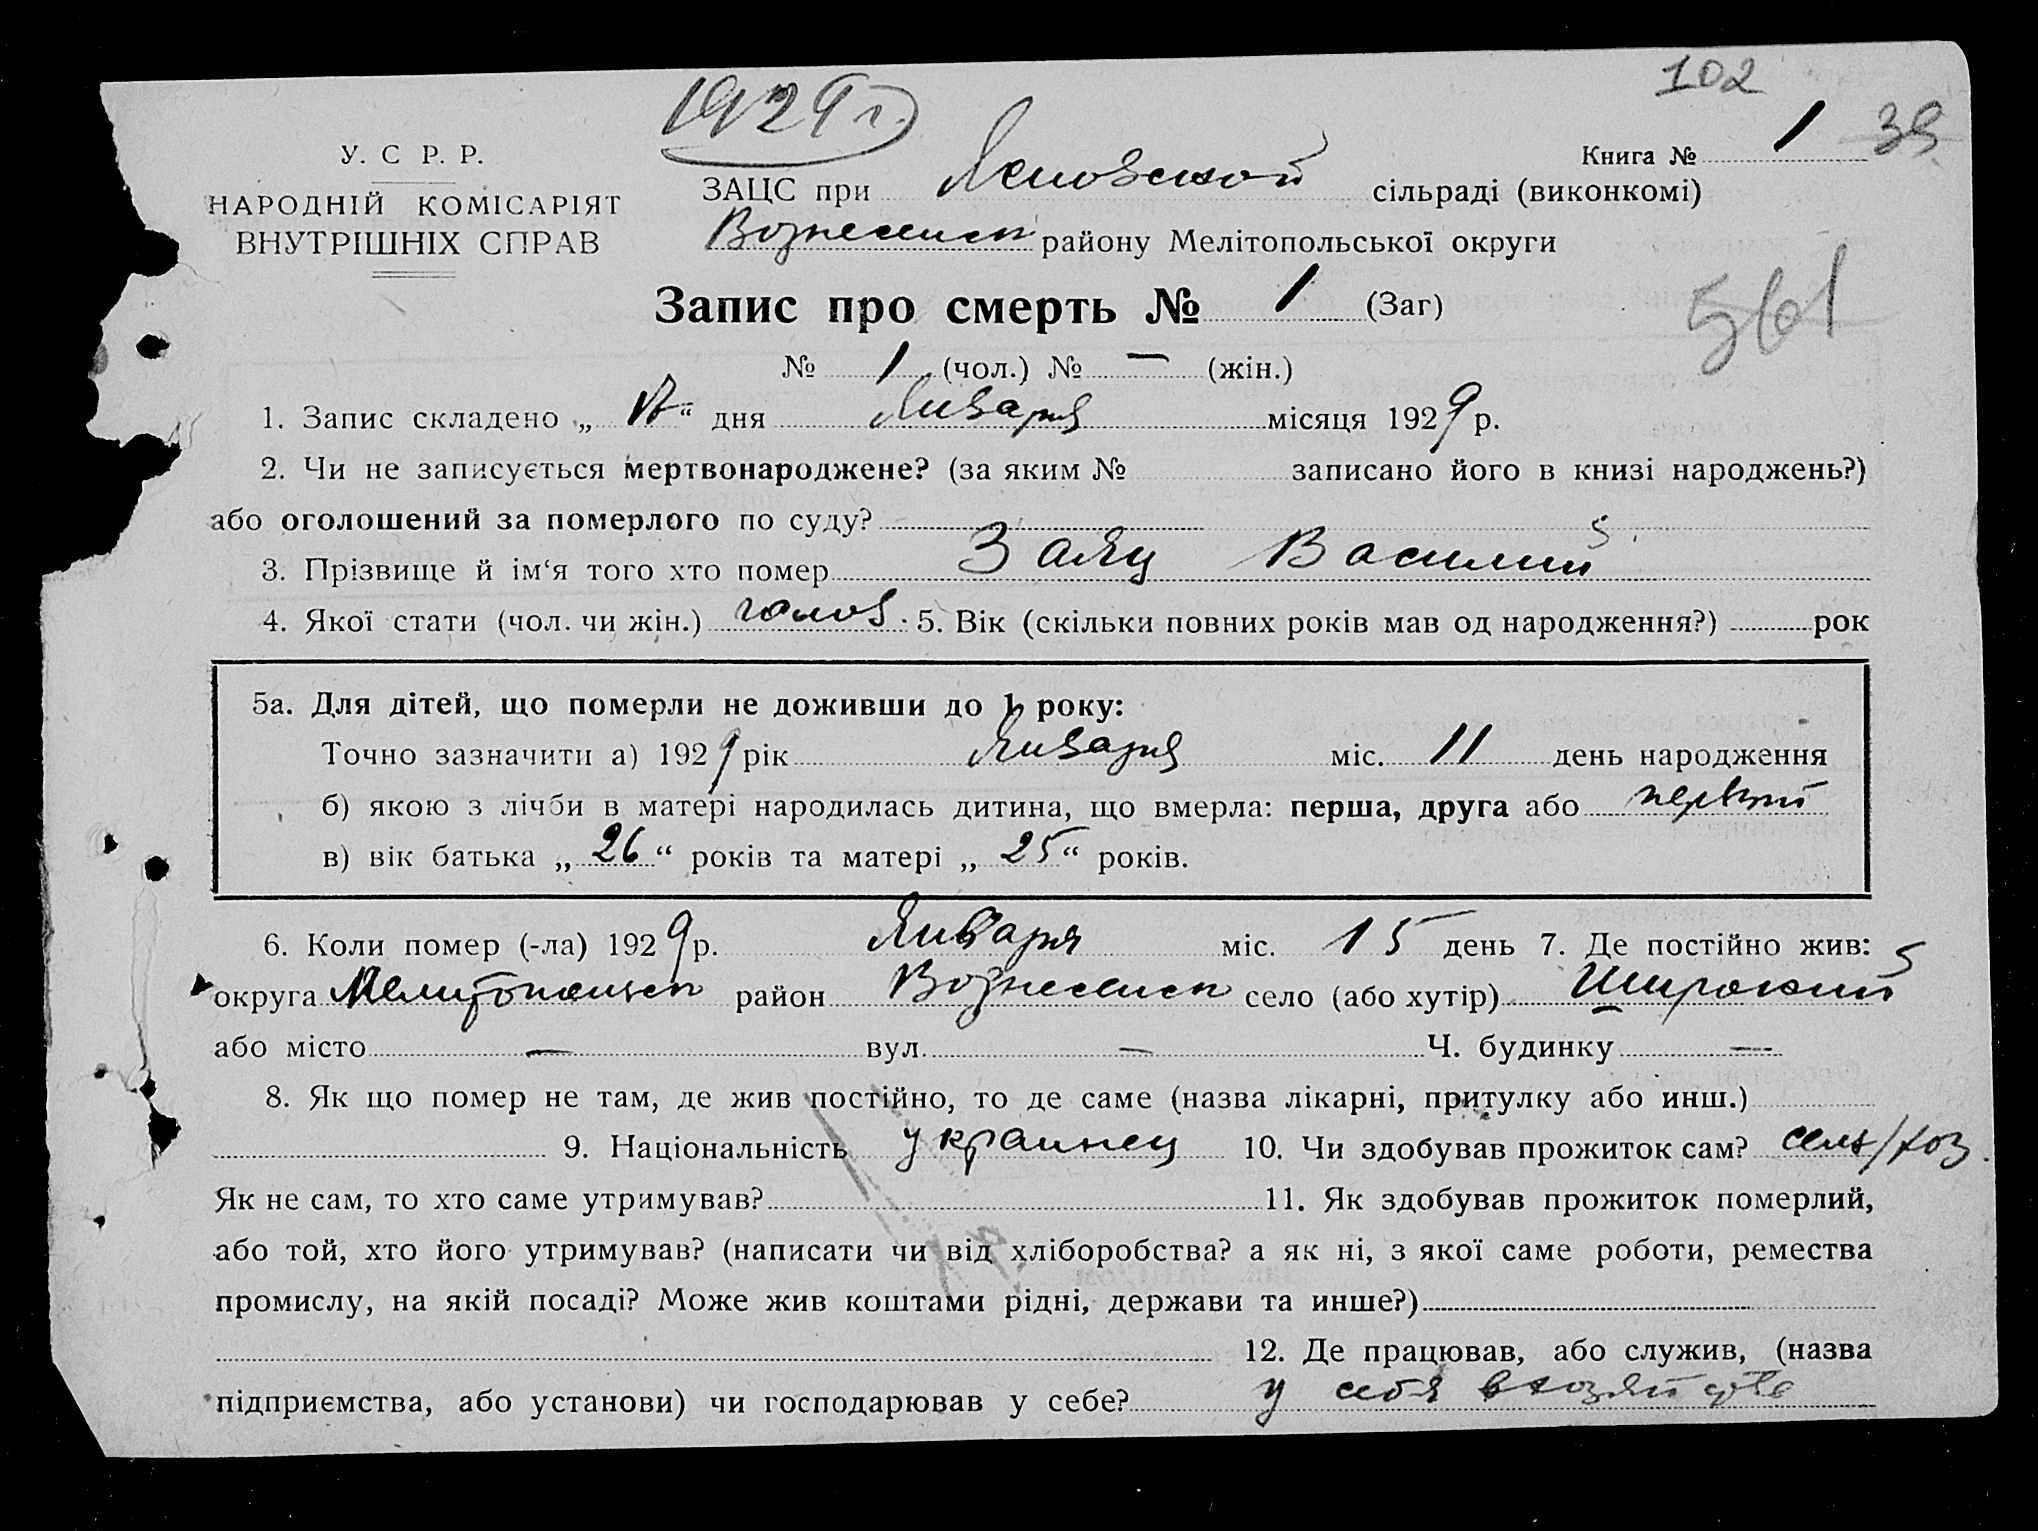 102
1929 г.
У. С Р. Р.
Книга № 1 39
ЗАЦС при сільраді (виконкомі)
НАРОДНІЙ КОМІСАРІЯТ
ВНУТРІШНІХ СПРАВ
Вознесенск району Мелітопольської округи
561
Запис про смерть № 1 (Заг)
№ 1 (чол.) № — (жін.)
1. Запис складено „ “ дня Января місяця 1929 р.
2. Чи не записується мертвонароджене? (за яким № записано його в книзі народжень?)
або оголошений за померлого по суду?
3. Прізвище й ім‘я того хто помер Заяц Василий
4. Якої стати (чол. чи жін.) 5. Вік (скільки повних років мав од народження?) рок
5а. Для дітей, що померли не доживши до 1 року:
Точно зазначити а) 1929 рік Января міс. 11 день народження
б) якою з лічби в матері народилась дитина, що вмерла: перша, друга або первый
в) вік батька „ 26 “ років та матері „ 25 “ років.
6. Коли помер (-ла) 1929 р. Января міс. 15 день 7. Де постійно жив:
округа Мелитопольск район Вознесенск село (або хутір) Широкий
або місто — вул. — Ч. будинку —
8. Як що помер не там, де жив постійно, то де саме (назва лікарні, притулку або инш.)
9. Національність украинец 10. Чи здобував прожиток сам? сель/хоз.
Як не сам, то хто саме утримував? 11. Як здобував прожиток померлий,
або той, хто його утримував? (написати чи від хліборобства? а як ні, з якої саме роботи, ремества
промислу, на якій посаді? Може жив коштами рідні, держави та инше?)
12. Де працював, або служив, (назва
підприємства, або установи) чи господарював у себе? у себя в хозяйстве